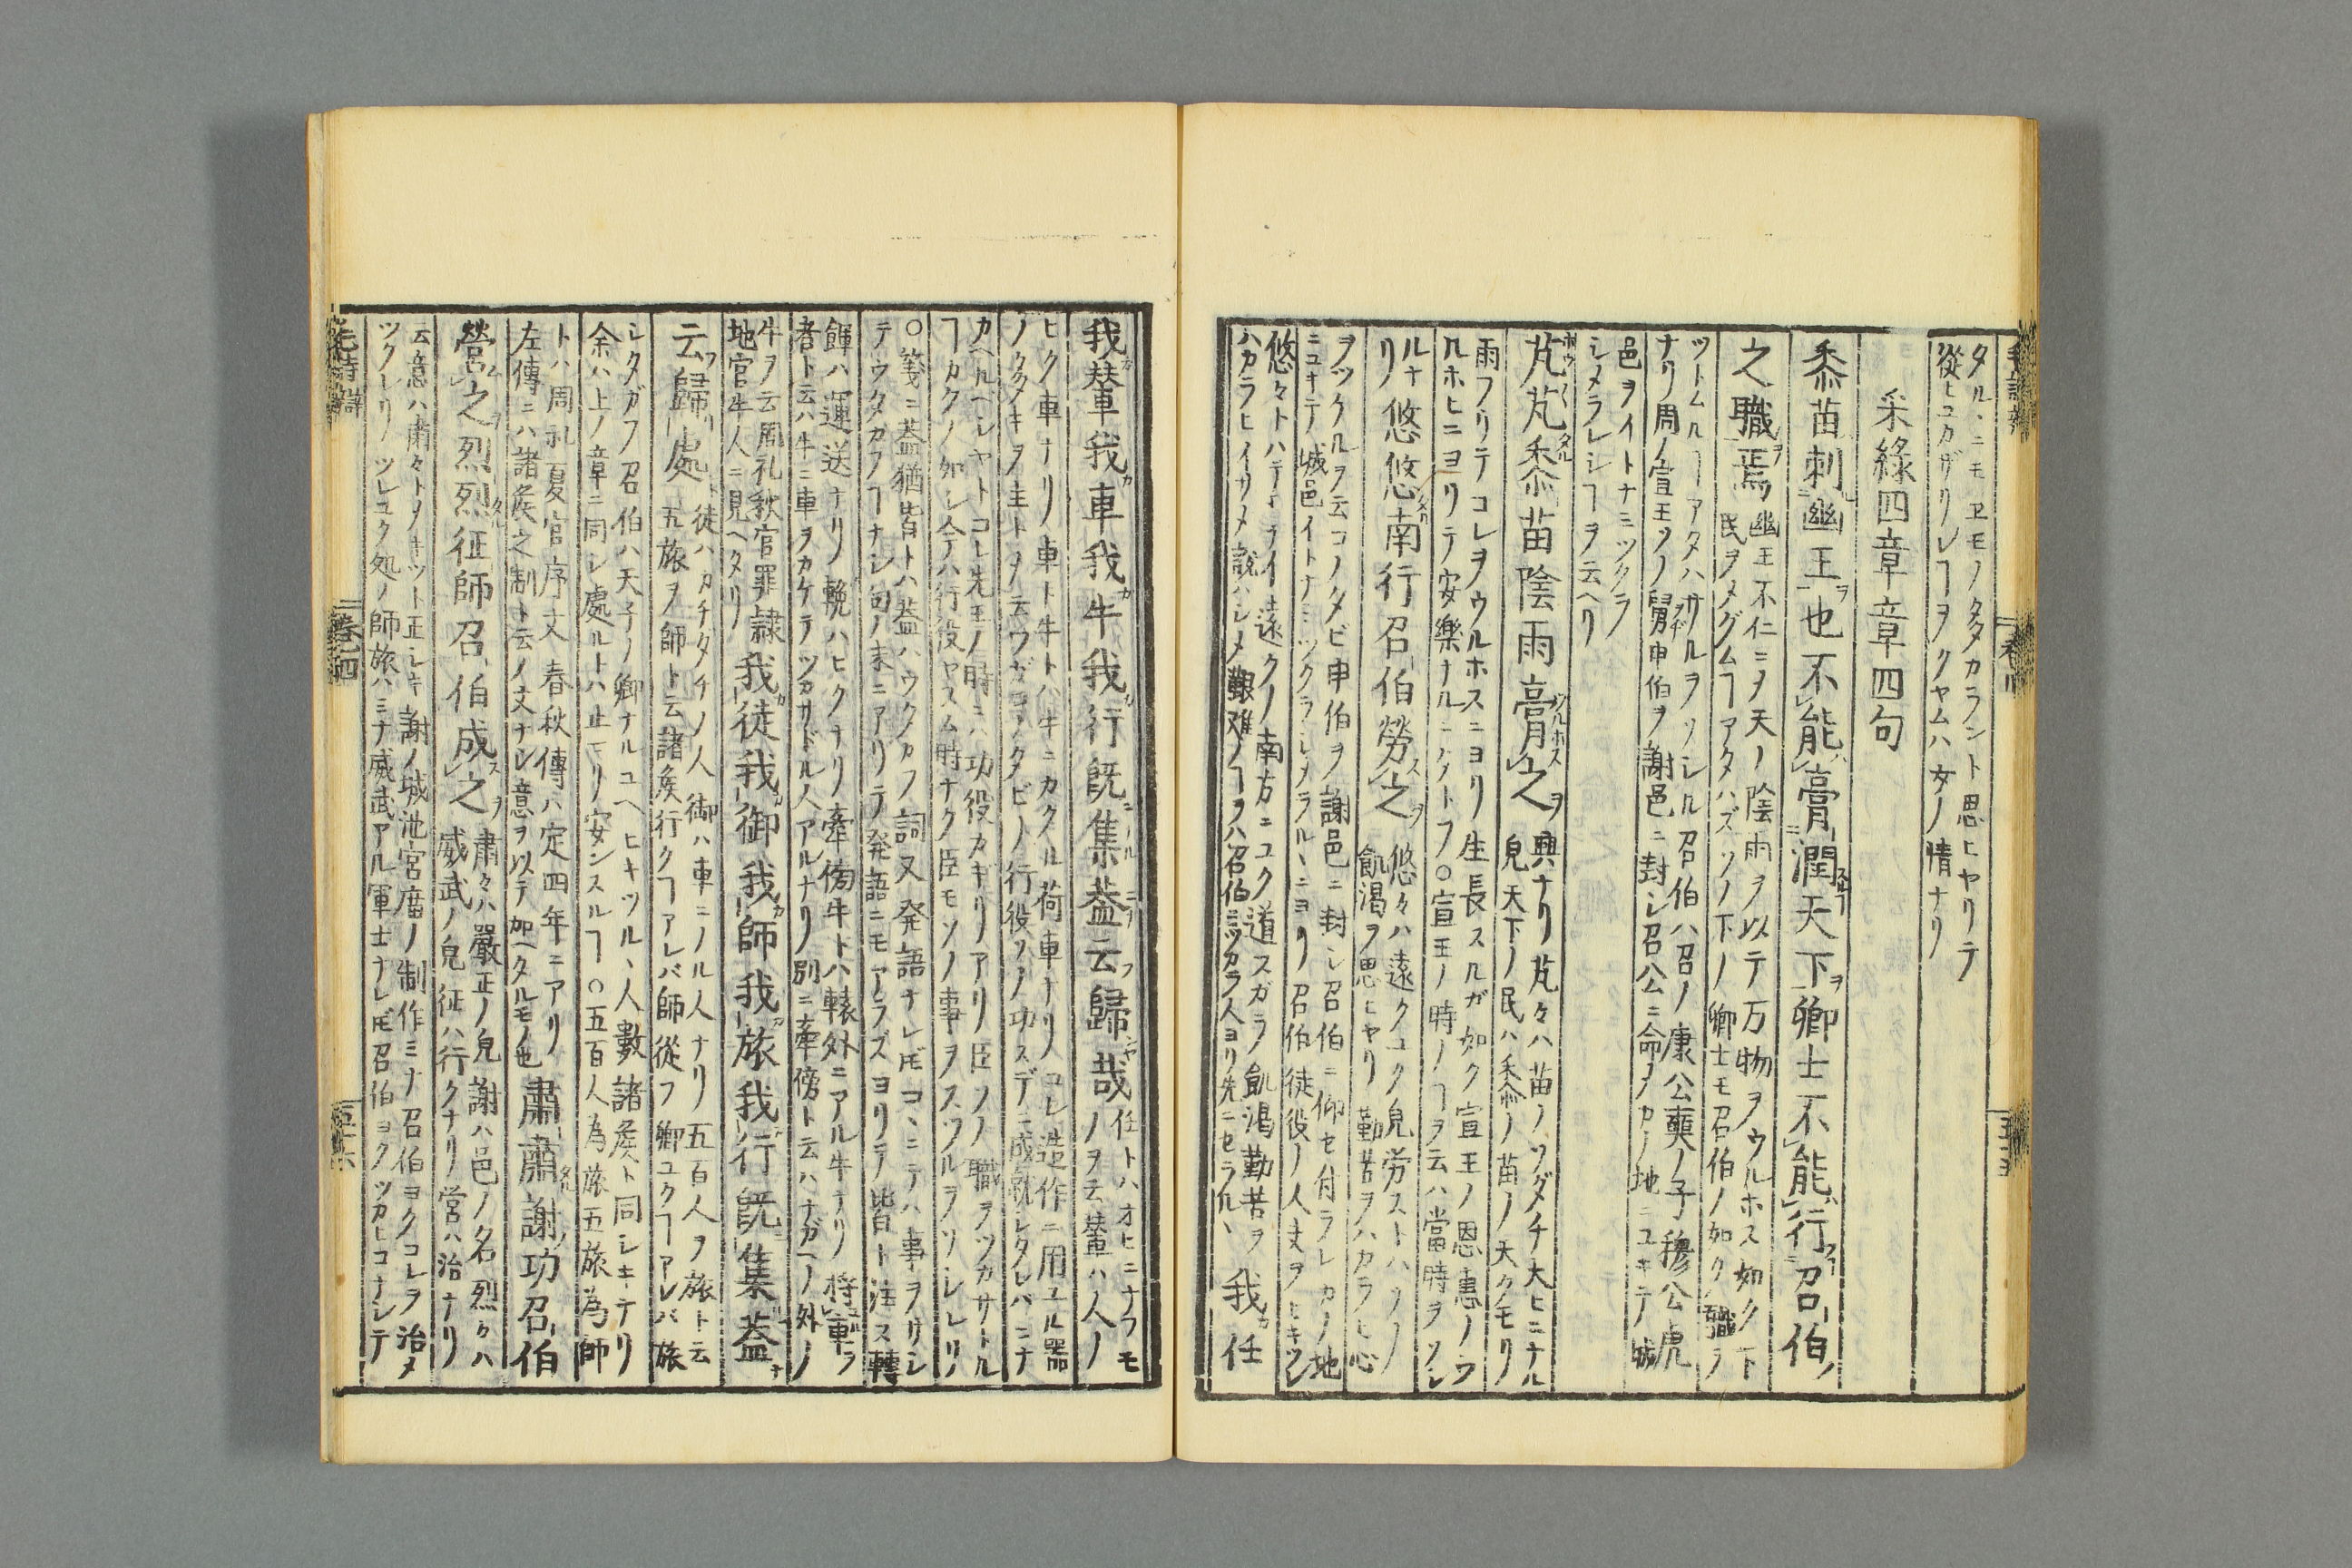 タルヽニモヱモノ多カラント思ヒヤリテ
從ヒユカザリレヿヲクヤムハ女ノ情ナリ
采綠四章章四句
黍苗刺幽王也不能膏潤天下卿士不能行召伯
之職焉
幽王不仁ニヲ天ノ陰雨ヲ以テ万物ヲウルホス如ク下
民ヲメグムヿアタハズソノ下ノ卿士モ召伯ノ如ク職ヲ
ツトムルヿアタハサルヲソシル召伯ハ召ノ康公奭ノ子穆公虎
ナリ周ノ宣王ソノ舅申伯ヲ謝邑ニ封シ召公ニ命ノカノ地ニユキテ城
邑ヲイトナミツクラ
シメラレシヿヲ云ヘリ
芃芃黍苗陰雨膏之
興ナリ芃々ハ苗ノソダチ大ヒニナル
皃天下ノ民ハ黍ノ苗ノ大クモリ
雨フリテコレヲウルホスニヨリ生長スルガ如ク宣王ノ恩惠ノウ
ルホヒニヨリテ安樂ナルニタトフ○宣王ノ時ノヿヲ云ハ當時ヲソシ
ルナ
リ
悠悠南行召伯勞之
悠々ハ遠クユク皃労ストハソノ
飢渇ヲ思ヒヤリ勤苦ヲハカラヒ心
ヲツクルヲ云コノタビ申伯ヲ謝邑ニ封シ召伯ニ仰セ付ラレカノ地
ニユキテ城邑イトナミツクラレメラルヽニヨリ召伯徒役ノ人夫ヲヒキツレ
悠々トハテナライ遠クノ南方ニユク道スガラノ飢渇勤苦ヲ
ハカラヒイサメ說ハシメ艱难ノヿヲハ召伯ミツカラ人ヨリ先ニセラルヽ
我任
我輦我車我牛我行旣集蓋云歸哉
任トハオヒニナフモ
ノヲ云輦ハ人ノ
ヒク車ナリ車ト牛トハ牛ニカクル荷車ナリコレ造作ニ用ユル器
ノ多キヲ主トメ云ウガコノタビノ行役ソノ功スデニ成就シタレバミナ
カヘルベシヤトコレ先王ノ時ニハ功役カギリアリ臣ソノ職ヲツカサトル
ヿカクノ如シ今ハ行役ヤスム時ナク臣モソノ事ヲスツルヲソレリ
○箋ニ蓋猶皆トハ蓋ハウタカフ詞又発語ナレ𪜈コヽニテハ事ヲサシ
テウタカフヿナシ句ノ末ニアリテ発語ニモアラズヨリテ皆ト注ス轉
餫ハ運送ナリ輓ハヒクナリ牽傍牛トハ轅外ニアル牛ナリ將車ヲ
者ト云ハ牛ニ車ヲカケテツカサドル人アルナリ別ニ牽傍ト云ハナガヘノ外ノ
牛ヲ云周礼秋官罪隷
地官牛人ニ見ヘタリ
我徒我御我師我旅我行旣集蓋
云歸處
徒ハカチダチノ人御ハ車ニノル人ナリ五百人ヲ旅ト云
五旅ヲ師ト云諸矦行クヿアレバ師從フ卿ユクヿアレバ旅
シタガフ召伯ハ天子ノ卿ナルユヘヒキツルヽ人數諸矦ト同シキナリ
余ハ上ノ章ニ同シ處ルトハ止マリ安ンスルヿ○五百人為旅五旅為師
トハ周礼夏官序文春秋傳ハ定四年ニアリ
左傳ニハ諸矦之制ト云ノ文ナシ意ヲ以テ加ヘタルモノ也
肅肅謝功召伯
營之烈烈征師召伯成之
肅々ハ嚴正ノ皃謝ハ邑ノ名烈々ハ
威武ノ皃征ハ行クナリ営ハ治ナリ
云意ハ肅々トメキツト正シキ謝ノ城池宮庿ノ制作ミナ召伯ヨクコレヲ治メ
ツクレリツレユク処ノ師旅ハミナ威武アル軍士ナレ𪜈召伯ヨクツカヒコナシテ
毛詩辯
卷四
五十六